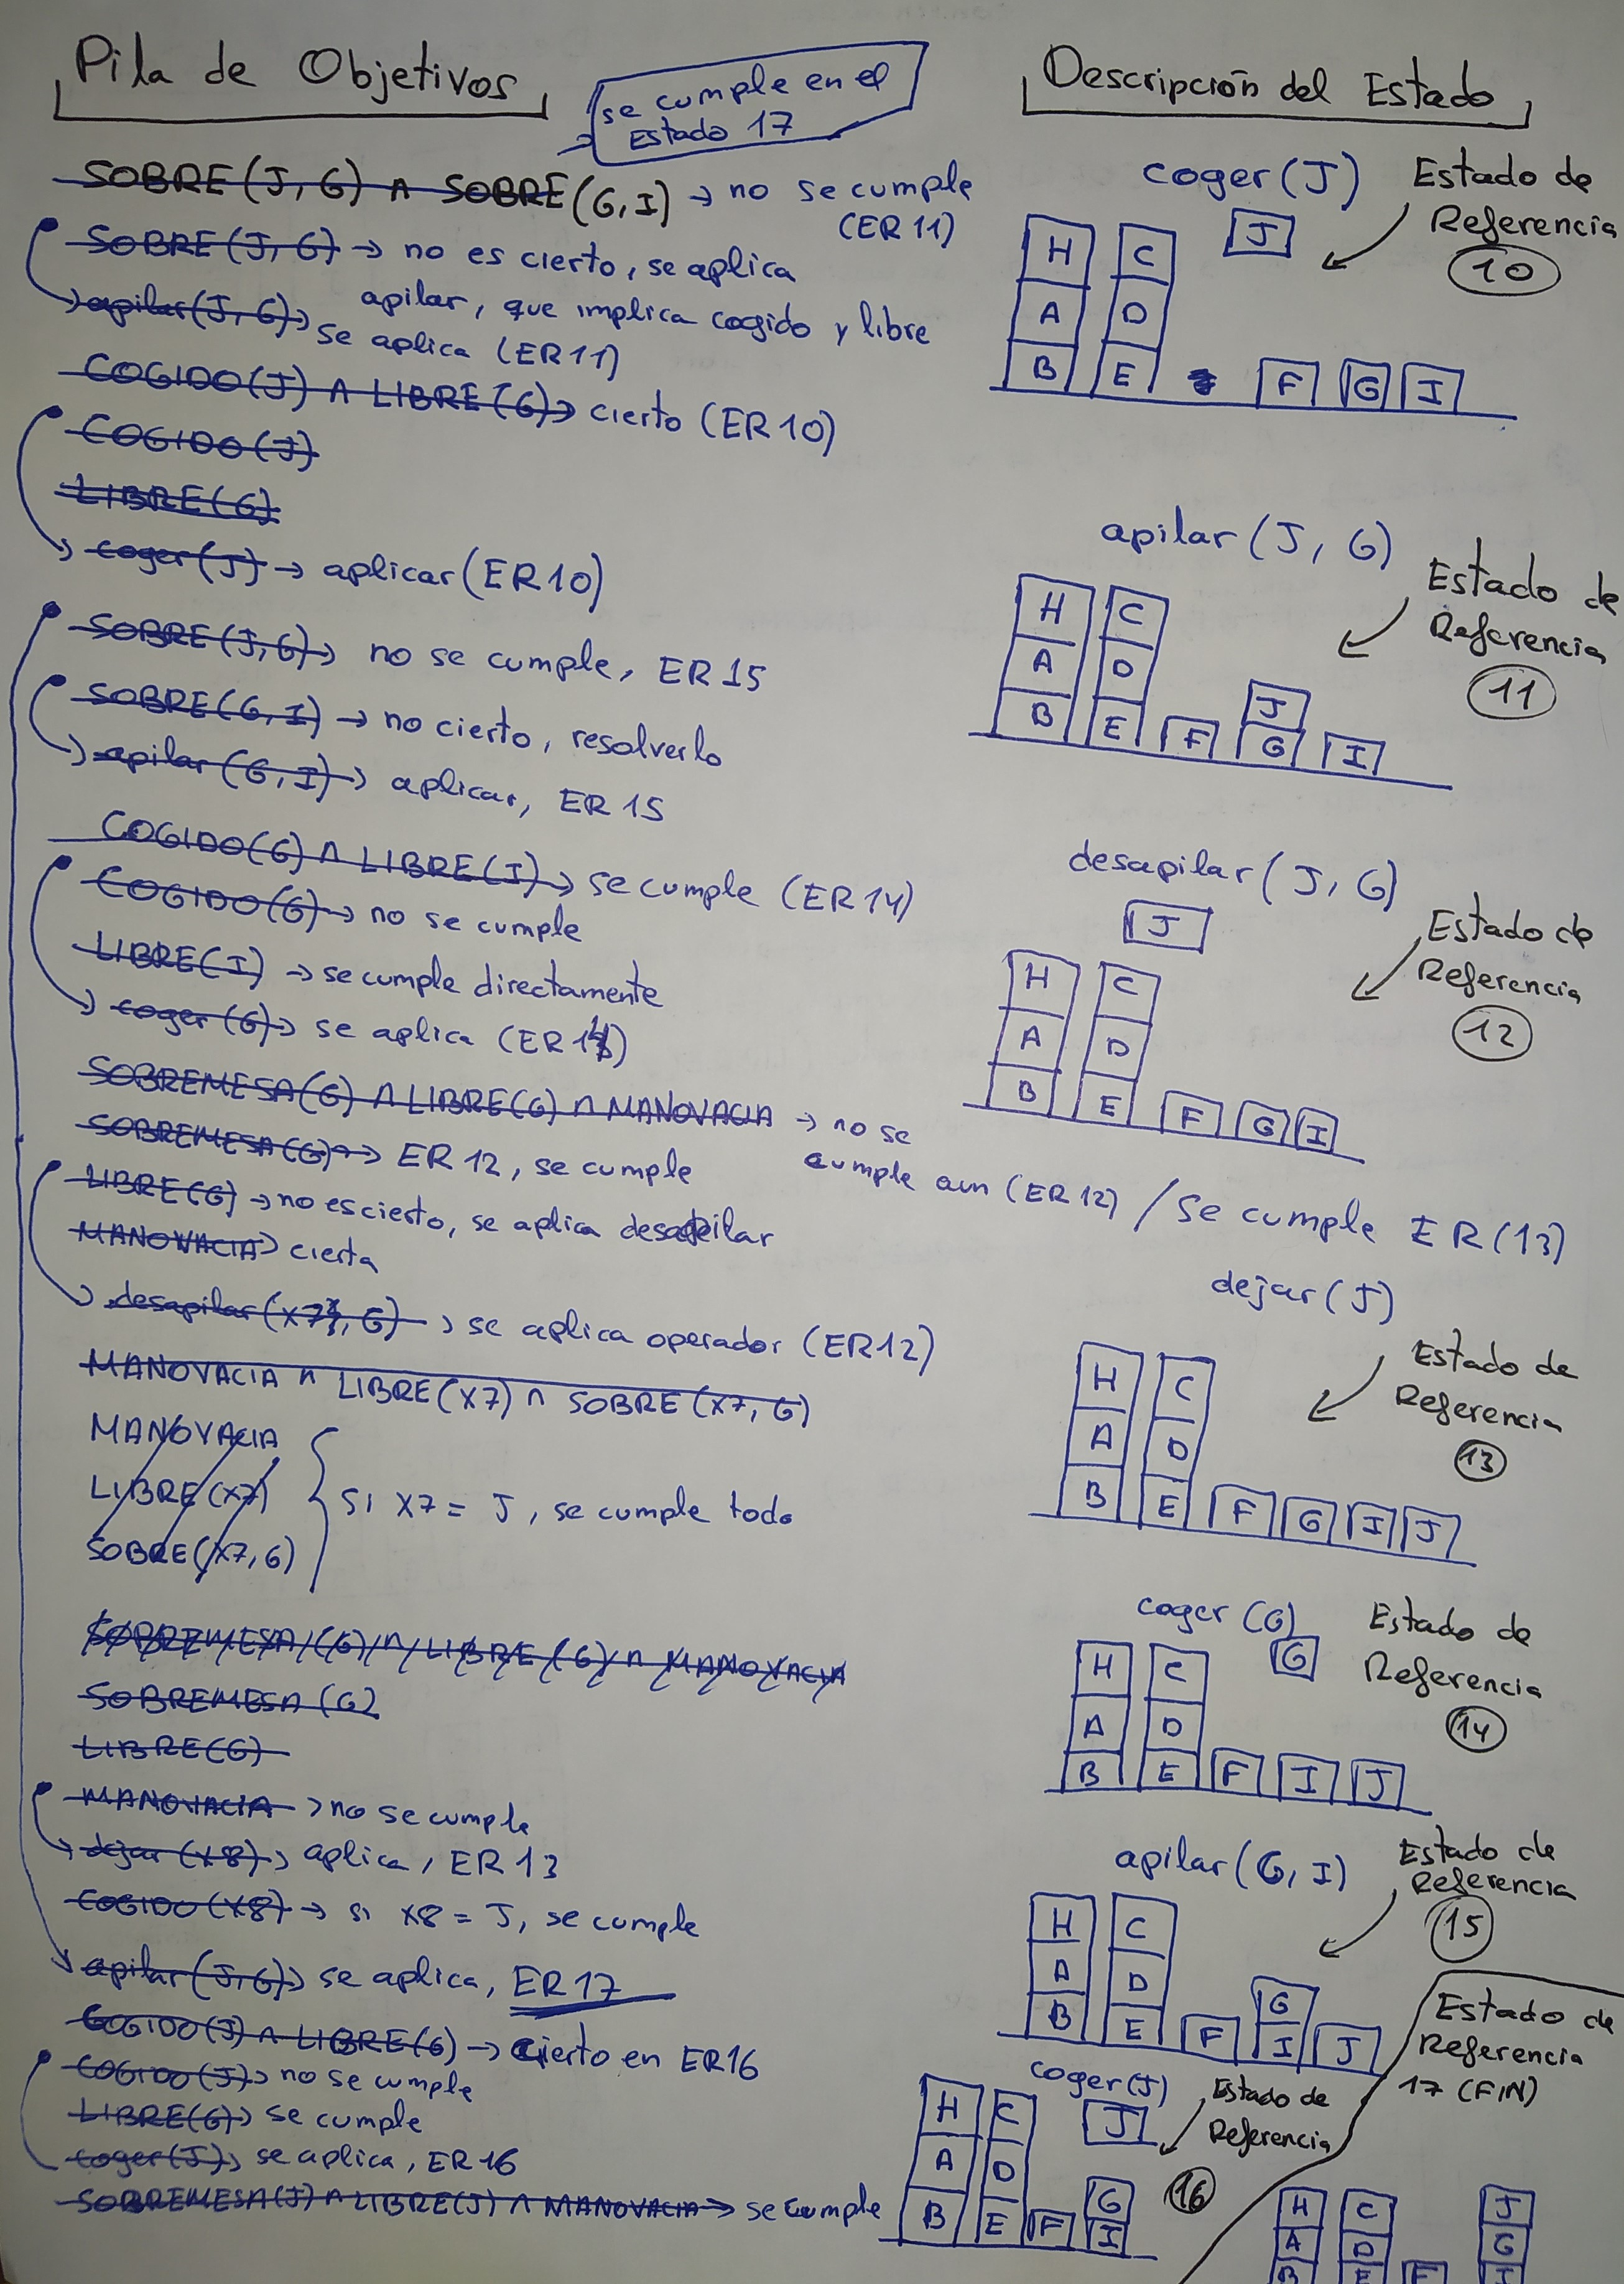 Pila de Objetivos
se cumple en el
Estado 17
SOBRE(J, G) ∧ SOBRE(G, I) → no se cumple
(ER 11)
SOBRE(J, G) → no es cierto, se aplica
apilar, que implica cogido y libre
apilar(J, G) → se aplica (ER 11)
COGIDO(J) ∧ LIBRE(G) → cierto (ER 10)
COGIDO(J)
LIBRE(G)
coger(J) → aplicar (ER 10)
SOBRE(J, G) → no se cumple, ER 15
SOBRE(G, I) → no cierto, resolverlo
apilar(G, I) → aplicar, ER 15
COGIDO(G) ∧ LIBRE(I) → se cumple (ER 14)
COGIDO(G) → no se cumple
LIBRE(I) → se cumple directamente
coger(G) → se aplica (ER 14)
SOBREMESA(G) ∧ LIBRE(G) ∧ MANOVACIA → no se
cumple aun (ER 12) / Se cumple ER(13)
SOBREMESA(G) → ER 12, se cumple
LIBRE(G) → no es cierto, se aplica desapilar
MANOVACIA → cierta
desapilar(X7, G) → se aplica operador (ER12)
MANOVACIA ∧ LIBRE(X7) ∧ SOBRE(X7, G)
MANOVACIA
LIBRE(X7)
SOBRE(X7, G)
si X7 = J, se cumple todo
SOBREMESA(G) ∧ LIBRE(G) ∧ MANOVACIA
SOBREMESA(G)
LIBRE(G)
MANOVACIA → no se cumple
dejar(X8) → aplica, ER 13
COGIDO(X8) → si X8 = J, se cumple
apilar(J, G) → se aplica, ER 17
COGIDO(J) ∧ LIBRE(G) → cierto en ER 16
COGIDO(J) → no se cumple
LIBRE(G) → se cumple
coger(J) → se aplica, ER 16
SOBREMESA(J) ∧ LIBRE(J) ∧ MANOVACIA → se cumple
Descripción del Estado
coger(J)
Estado de
Referencia
10
J
H C
A D
B E F G I
apilar(J, G)
Estado de
Referencia
11
H C
A D
J
B E F G I
desapilar(J, G)
Estado de
Referencia
12
J
H C
A D
B E F G I
dejar(J)
Estado de
Referencia
13
H C
A D
B E F G I J
coger(G)
Estado de
Referencia
14
G
H C
A D
B E F I J
apilar(G, I)
Estado de
Referencia
15
H C
A D
G
B E F I J
coger(J)
Estado de
Referencia
16
J
H C
A D
G
B E F I
Estado de
Referencia
17 (FIN)
H C J
A D G
B E F I